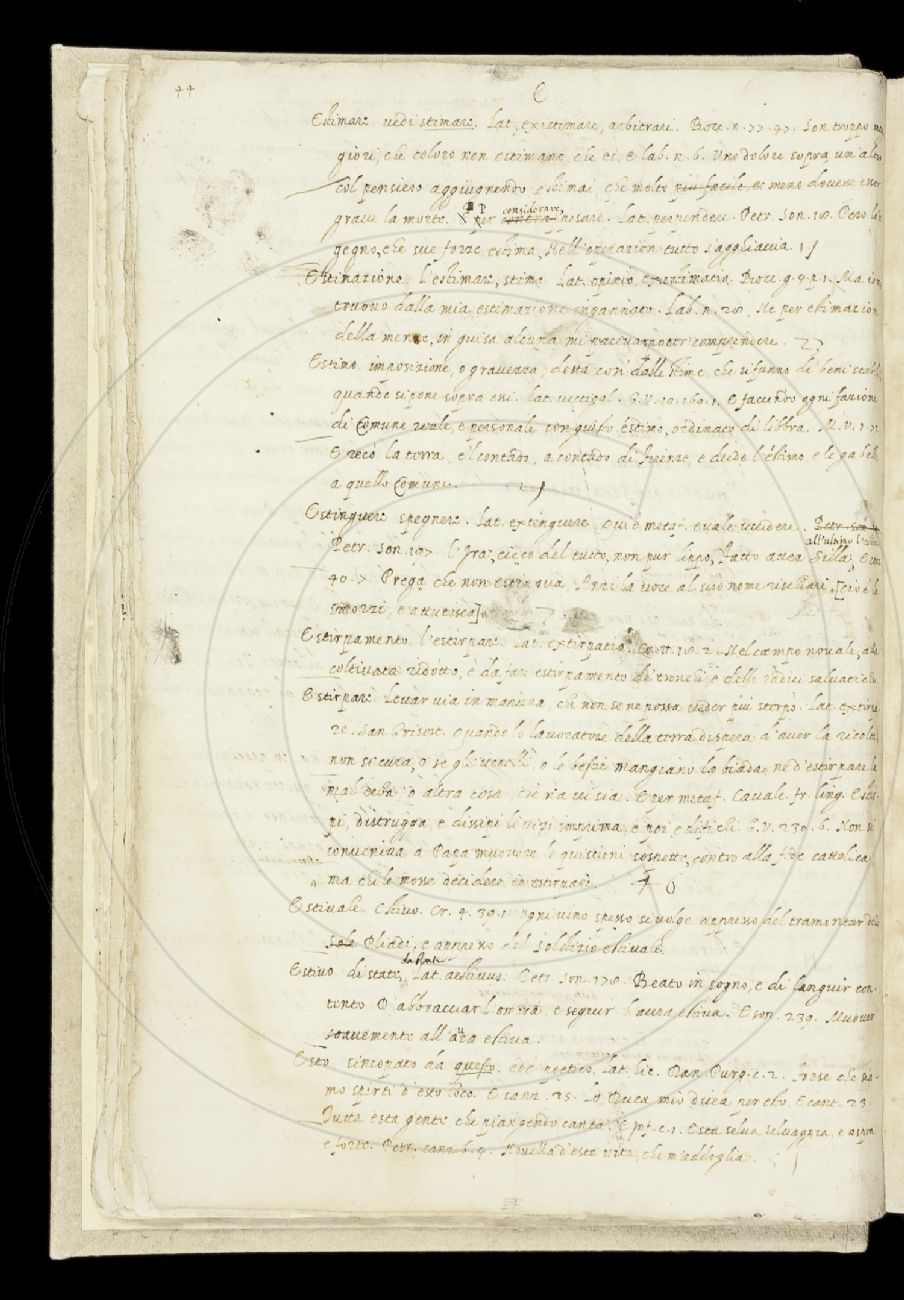 44
E
Estimare vedi stimare. Lat. existimare, arbitrari. Bocc. n. 77. 47. Son troppo mag
giori, che coloro non estimano, che ei. E lab. n. 6. Uno dolore sopra un'altro
col pensiero aggiugnendo estimai, che molto più facile, et meno dovere esser
grave la morte. P per contra considerare, pesare. Lat. perpendere. Petr. Son. 18. Però l'in
gegno, che sue forze estima, Nell'operazion tutto s'agghiaccia.
Estimazione. l'estimare, stima. Lat. opinio, existimatio. Bocc. g. 4. p. 1. Ma io
truovo dalla mia estimazione ingannato. Lab. n. 28. Ne per estimazion
della mente, in guisa alcuna mi comprendere.
Estimo imposizione, o gravezza, detta così dalle stime, che si fanno de beni
quando si pone sopra essi. Lat. vectigal. G. V. 10. 169. 1. E facendo ogni fazione
di Comune reale, e personale con guisto estimo, ordinato di libbra. M. V. 1.
E recò la terra, e 'l contado, a contado di Firenze, e diede l'estimo, e le gabelle
a quello Comune.
Estinguere spegnere. Lat. extinguere, qui è metaf. e vale uccidere. Petr. Son.
all'ultimo l'estinse
Petr. Son. 197 l'Ira cieco del tutto, non pur lippo, Fatto avea Silla,
40. 7. Prega che non estingua Anzi la voce al suo nome rischiari [cioè
smorzi, e attutisca]
Estirpamento l'estirpare. Lat. extirpatio. Cr. 2. Nel campo novale, a
coltivata ridotto, è da fare estirpamento de' tronchi, e delle radici salvatiche
Estirpare. Levar via in maniera, che non se ne possa veder più sterpo. Lat. extirpa
re. San Grisost. Quando lo lavoratore della terra dispera d'aver la ricolta,
non si cura, o se gli uccelli, o le bestie mangiano la biada, ne d'estirpare la
mal' erba, o altra cosa, che ria vi sia. E per metaf. Cavalc. fr. ling. Estir-
pi, distrugga, e dissipi li vizi imprima, e poi edifichi. G. V. 230. 6. Non si
conveniva a Papa muovere le quistioni sospette, contro alla fede cattolica
ma chi le mosse decidere, ed estirpare. 6
Estivale. Estivo. Cr. 4. 39. 1. ogni vino spesso si volge appresso del tramontar delle
sole Pliadi, e appresso del solstizio estivale.
Estivo di state, da state Lat. aestivus. Petr. Son. 178. Beato in sogno, e di languir con-
tento D'abbracciar l'ombra, e seguir l'aura estiva. E son. 239. Muover
soavemente all'aura estiva.
Esto sincopato da questo. ed è poetico. Lat. hic. Dan. Purg. c. 2. forse che sia-
mo sperti d'esto loco. E cant. 25. Lo Duca mio dicea per cho. E cant. 23.
Tutta esta gente che piangendo canta. E Inf. c. 1. Esta selva selvaggia, e aspra
e forte. Petr. canz. 6. 4. Novella d'esta vita, che m'addoglia.